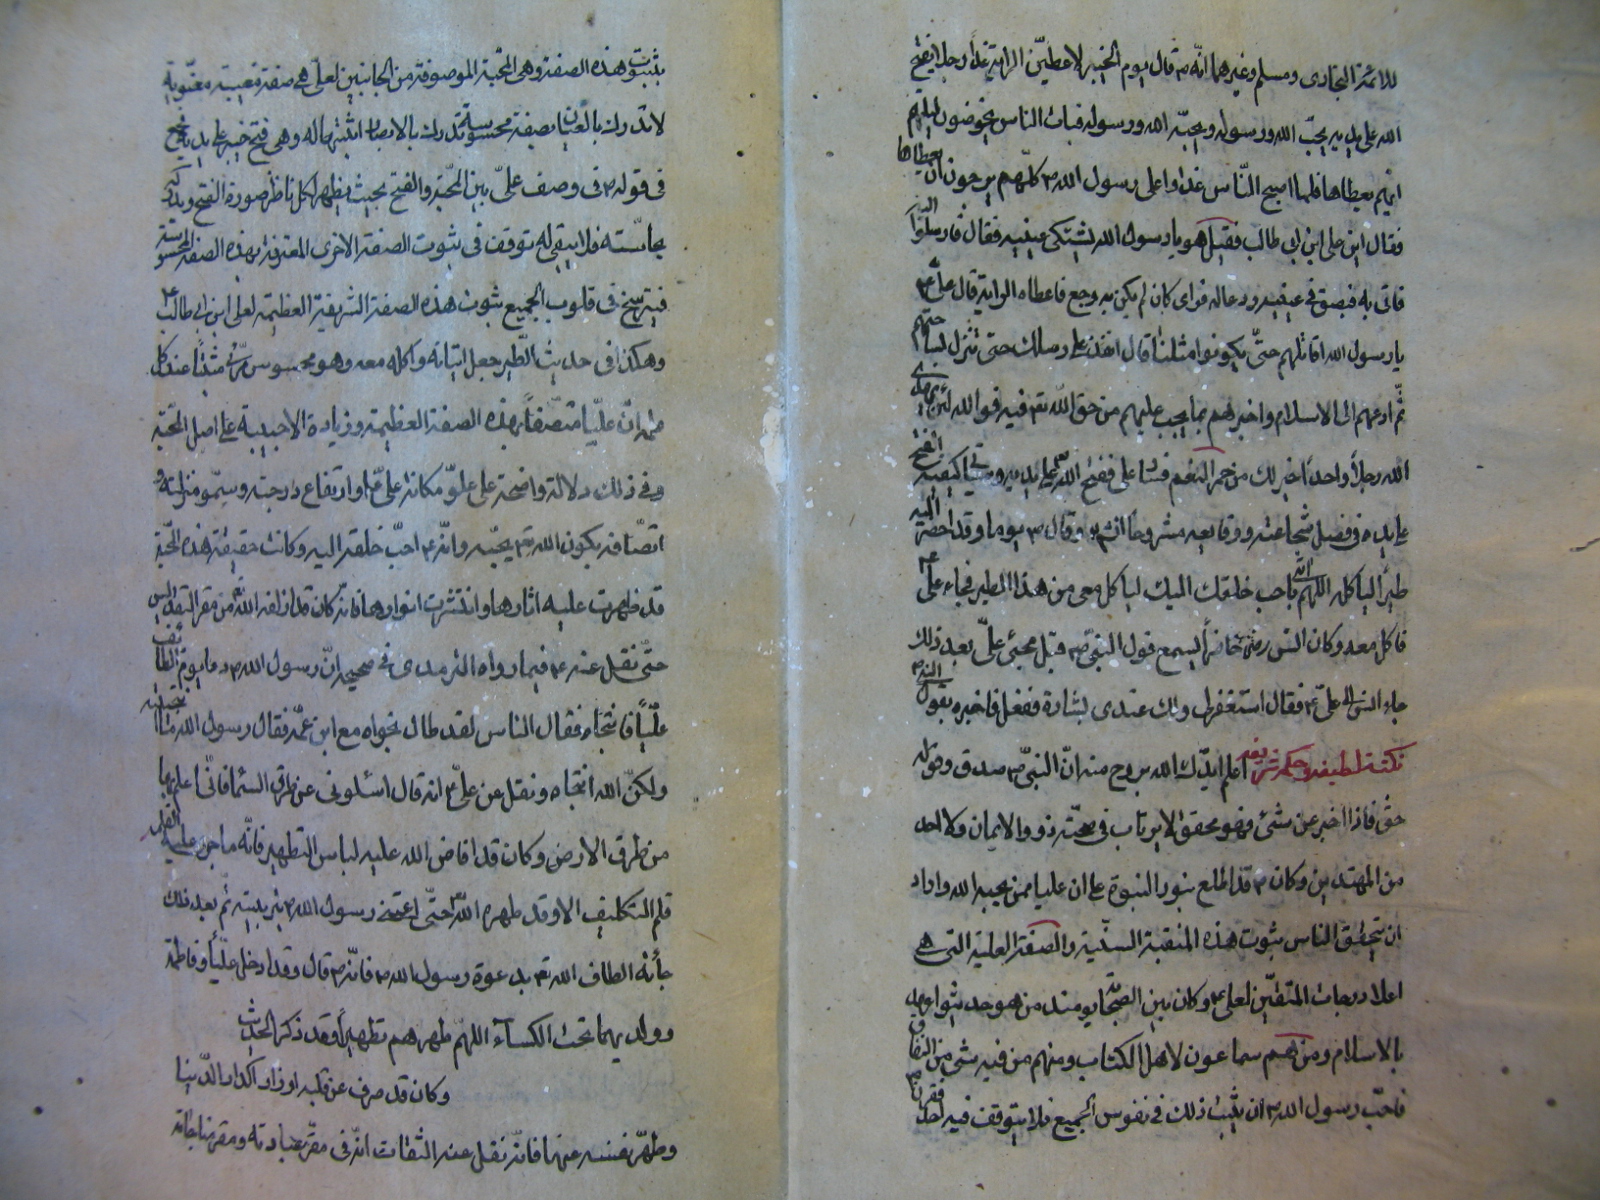 للائمة البخارى ومسلم وغيرهما انّه ص قال يوم الخيبر لاعطينّ الراية غداً رجلا يفتح
الله على يديه يحبّ الله ورسوله ويحبّه الله ورسوله فبات الناس يخوضون ليلهم
ايّهم يعطاها فلما اصبح النّاس غدوا على رسول الله ص كلّهم يرجون ان يعطاها
فقال اين على ابن ابى طالب فقيل هو يا رسول الله يشتكى عينيه فقال فارسلوا اليه
فاتى به فبصق فى عينيه ودعا له فبرأ كان لم يكن به وجع فاعطاه الراية قال علىّ ع
يا رسول الله اقاتلهم حتىّ يكونوا مثلنا قال انفذ على رسلك حتى تنزل بساحتهم
ثّم ادعهم الى الاسلام واخبرهم بما يجب عليهم من حق الله تع فيه فو الله لئن يهدى
الله رجلاً واحداً خير لك من حمر النعم فمضا على ففتح الله على يديه وسيأتى كيفية الفتح
على يده فى فصل شجاعته ووقايعه مشروحاً انش وقال ص يوما وقد احضر اليه
طير لياكله اللهم ائتنى باحب خلقك اليك لياكل معى من هذا الطير فجاء علىّ ع
فاكل معه وكان انس رضه حاضراً يسمع قول النبىّ ص قبل مجيئ علىّ بعد ذلك
جاء انس الى علىّ ع فقال استغفرلى ولك عندى بشارة ففعل فاخبره بقول النبى ص
نكتة لطيفة وحكمة شريفة اعلم ايدّك الله بروح منه انّ النبىّ ص صدق وقوله
حق فاذا اخبر عن شئ فهو محقق لا يرتاب فى صحّته ذووا الايمان ولا احد
من المهتدين وكان ص قد اطلع بنور النبوة على ان عليا ممن يحبه الله واراد
ان يتحقق الناس ثبوت هذه المنقبة السنّية والصفة العلية التى هى
اعلا درجات المتقين لعلى ع وكان بين الصحّابة يومئذ من هو حديث عهد
بالاسلام ومن هم سماعون لاهل الكتاب ومنهم من فيه شئ من النفاق
فاحبّ رسول الله ص ان يثبت ذلك فى نفوس الجميع فلا يتوقف فيه احد فقرن ص
بثبوت هذه الصفة وهى المحبة الموصوفة من الجانبين لعلىّ هى صفة معنويّة
لا تدرك بالعيان بصفة محسوسة تدرك بالابصار اثبتها له وهى فتح خيبر على يديه فجمع
فى قوله ص فى وصف علىّ بين المحبّة والفتح بحيث يظهر لكل ناظر صورة الفتح ويدركه
بحاسّته فلا يبقى له توقف فى ثبوت الصفة الاخرى المقترنة بهذه الصفة المحسوسة
فيترسخ فى قلوب الجميع ثبوت هذه الصفة الشريفة العظيمة لعلى ابن ابى طالب ع
وهكذا فى حديث الطّير جعل اتيانه واكله معه وهو محسوس مرئى مثبتاً عند كل
انّ عليّا متصّفاً بهذه الصفة العظيمة وزيادة الاحبية على اصل المحبّة
وفى ذلك دلالة واضحة على علوّ مكانة علىّ ع وارتفاع درجته وسموّ منزلته و
اتصّافه بكون الله تع يحبّه وانّه ع احبّ خلقه اليه وكانت حقيقة هذه المحبّة
قد ظهرت عليه اثارها وانتشرت انوارها فانّه كان قد ازلفه الله تع من مقر التقديس
حتّى نقل عنه ع فيما رواه الترمدى فى صحيحه انّ رسول الله ص دعا يوم الطائف
عليّاً فانتجاه فقال الناس لقد طال نجواه مع ابن عمّه فقال رسول الله ما انتجيته
ولكنّ الله انتجاه ونقل عن علىّ ع انه قال اسئلونى عن طرق السّما فانّى اعلم بها
من طرق الارض وكان قد افاض الله عليه لباس التطهير فانّه ما جرى عليه القلم
قلم التكليف الا وقد طهره الله حتّى رسول الله ص بتربيته ثم بعد ذلك
جائه الطاف الله تع بدعوة رسول الله ص فانّه ص قال وقد ادخل عليّا وفاطمة
وولديهما تحت الكساء اللهّم طهرهم تطهيراً وقد ذكر الحديث
وكان قد صرف عن قلبه اكدار الدّنيا
وطهّر نفسه عنها فانّه نقل عنه الثقات انّه فى مقرّ عبادته ومقر مناجاته